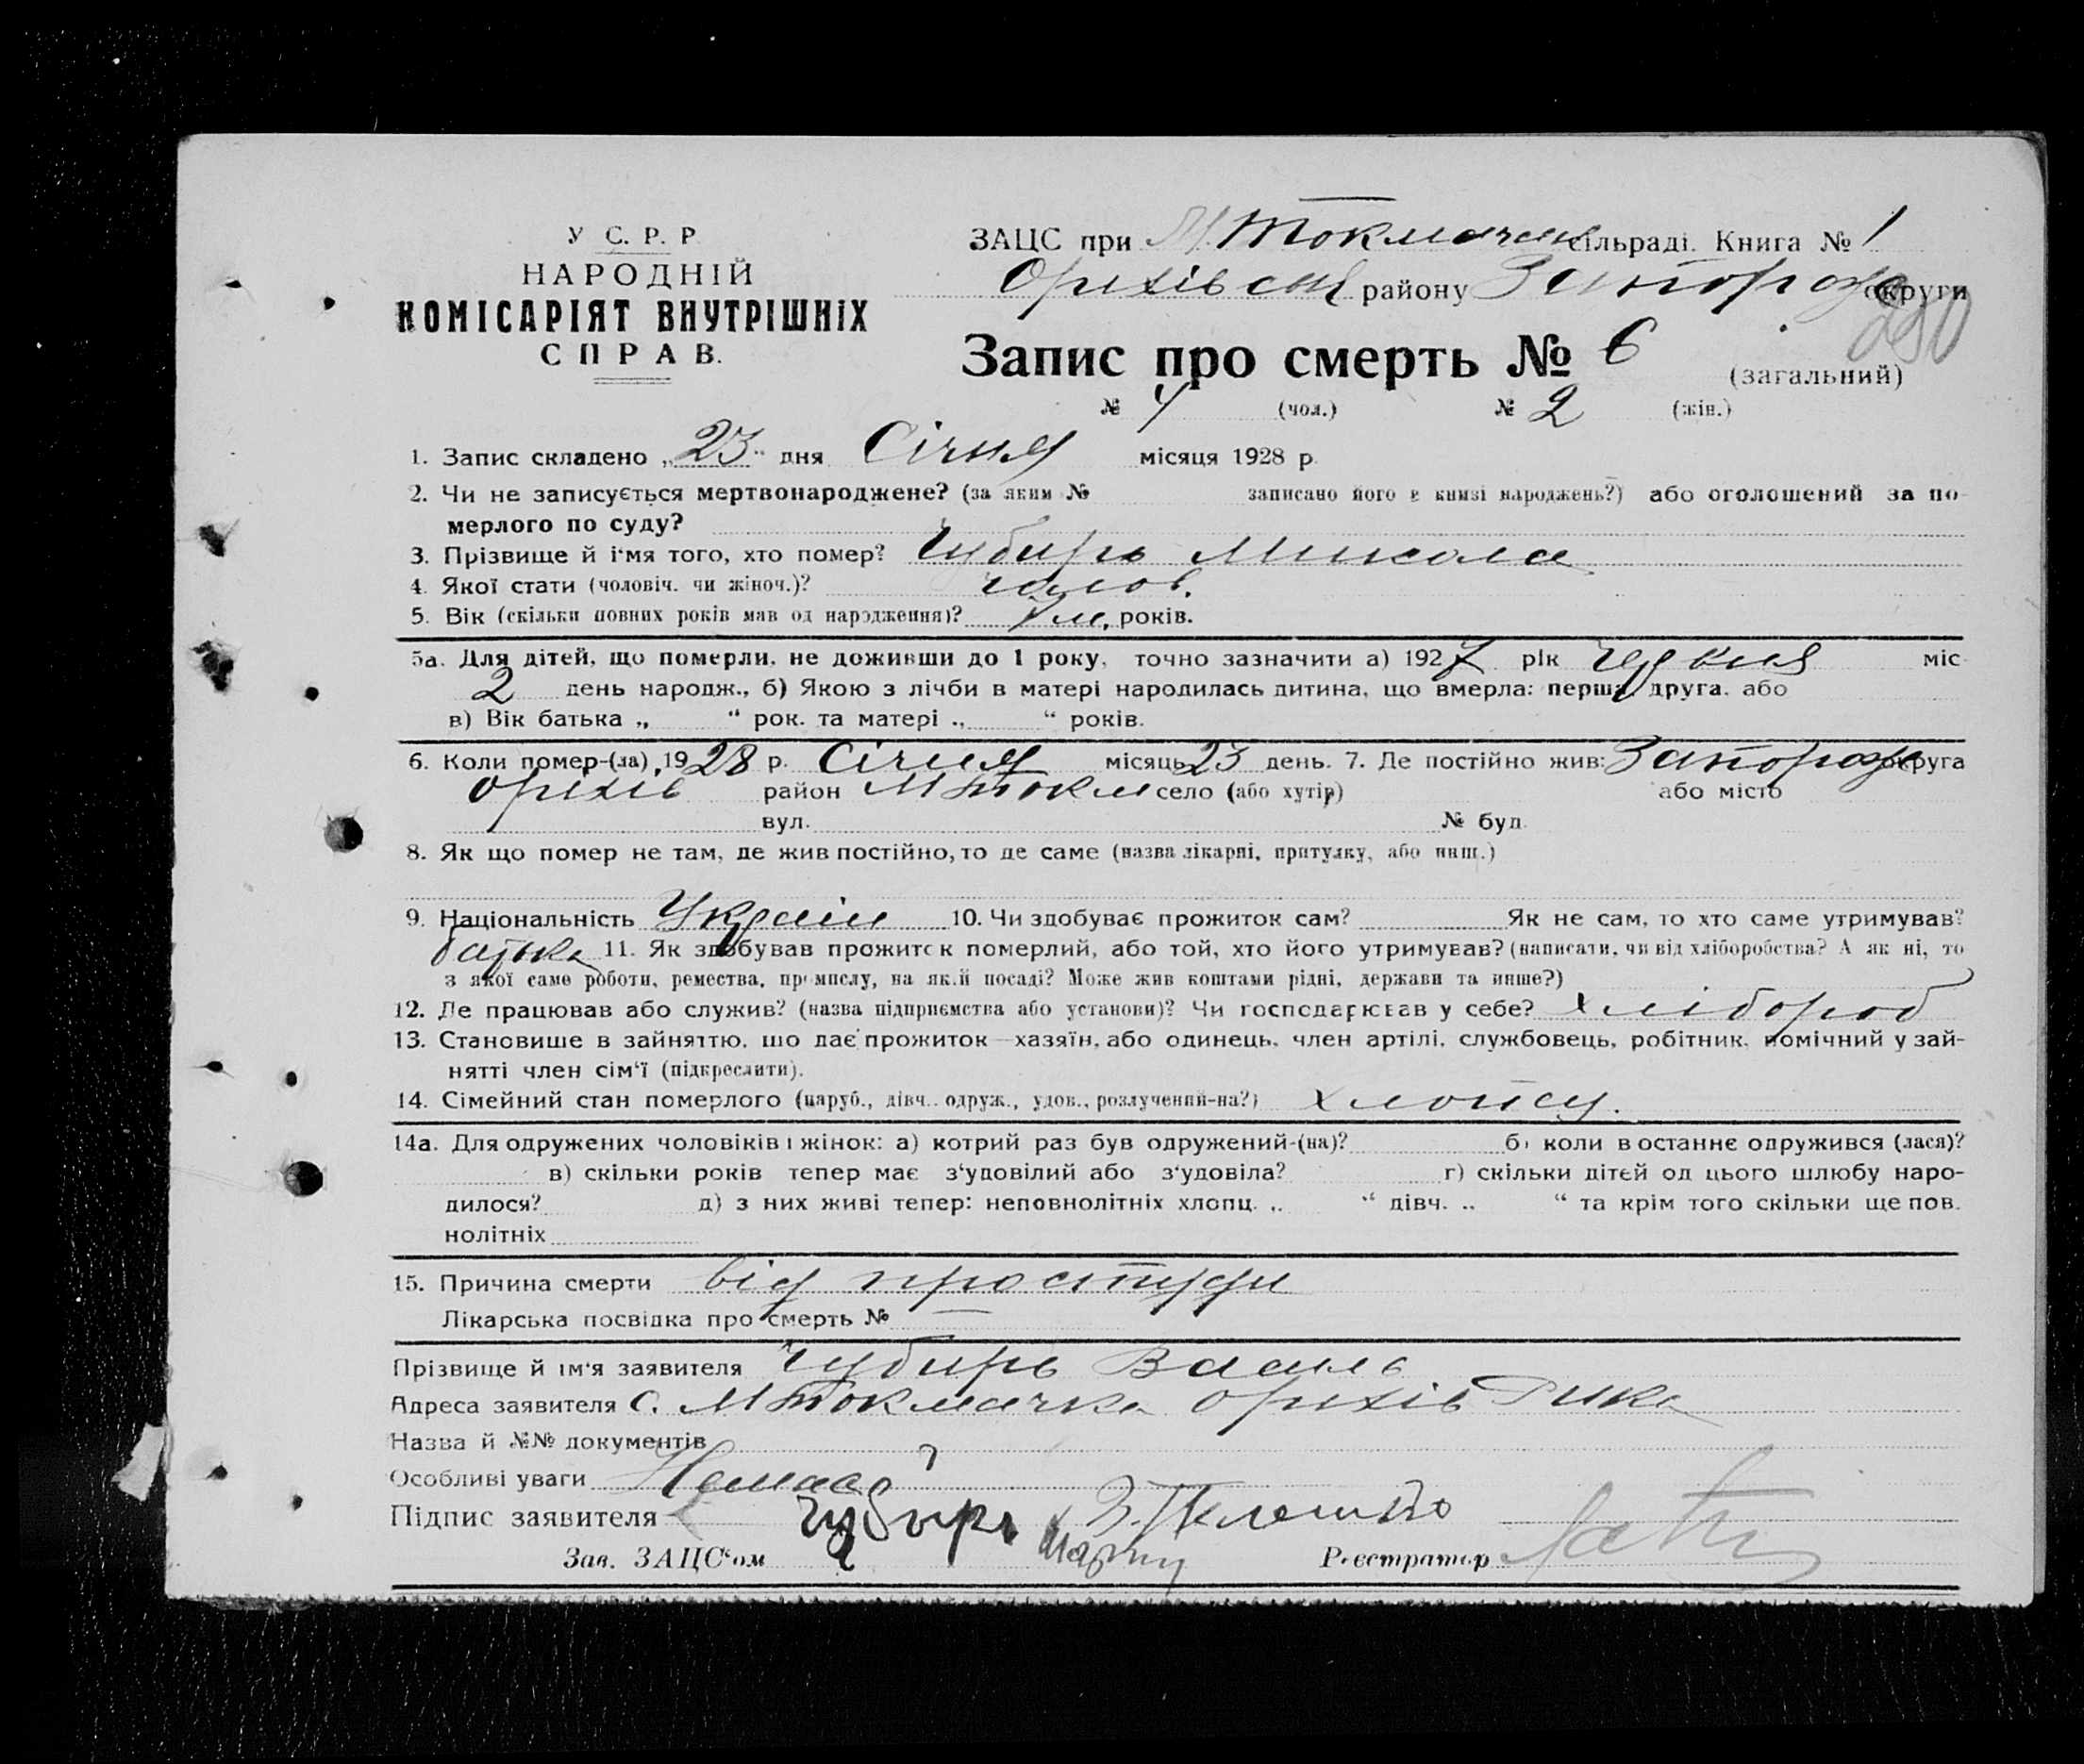 У С. Р. Р
НАРОДНІЙ
КОМІСАРІЯТ ВНУТРІШНІХ
СПРАВ.
ЗАЦС при М. Токмачан сільраді. Книга № 1
Оріхівськ району Запоріж округи
280
Запис про смерть № 6 (загальний)
№ 4 (чол.) № 2 (жін.)
1. Запис складено „23“ дня Січня місяця 1928 р.
2. Чи не записується мертвонароджене? (за яким № записано його в книзі народжень?) або оголошений за по-
мерлого по суду?
3. Прізвище й і‘мя того, хто помер? Чубирь Микола
4. Якої стати (чоловіч. чи жіноч.)? чолов.
5. Вік (скільки повних років мав од народження)? 7 м. років.
5а. Для дітей, що померли, не доживши до 1 року, точно зазначити а) 1927 рік Червня міс
2 день народж., б) Якою з лічби в матері народилась дитина, що вмерла: перша, друга. або
в) Вік батька „ “ рок. та матері „ “ років.
6. Коли помер-(ла) 1928 р. Січня місяць 23 день. 7. Де постійно жив: Запоріж округа
Оріхів район М Токм село (або хутір) або місто
вул. № буд.
8. Як що помер не там, де жив постійно, то де саме (назва лікарні, притулку, або инш.)
9. Національність Україн 10. Чи здобуває прожиток сам? Як не сам, то хто саме утримував?
батько 11. Як здобував прожиток померлий, або той, хто його утримував? (написати, чи від хліборобства? А як ні, то
з якої саме роботи, ремества, промислу, на якій посаді? Може жив коштами рідні, держави та инше?)
12. Де працював або служив? (назва підприємства або установи)? Чи господарював у себе? хлібороб
13. Становище в зайняттю, що дає прожиток—хазяїн, або одинець, член артілі, службовець, робітник, помічний у зай-
нятті член сім‘ї (підкреслити).
14. Сімейний стан померлого (паруб., дівч. одруж., удов., розлучений-на?) хлопец.
14а. Для одружених чоловіків і жінок: а) котрий раз був одружений-(на)? б) коли востаннє одружився (лася)?
в) скільки років тепер має з‘удовілий або з‘удовіла? г) скільки дітей од цього шлюбу наро-
дилося? д) з них живі тепер: неповнолітніх хлопц. „ “ дівч. „ “ та крім того скільки ще пов.
нолітніх
15. Причина смерти від простуди
Лікарська посвідка про смерть № —
Прізвище й ім‘я заявителя Чубирь Василь
Адреса заявителя с. М Токмачка Оріхів
Назва й №№ документів
Особливі уваги Немає
Підпис заявителя Чубирь
Зав. ЗАЦС‘ом Реєстратор